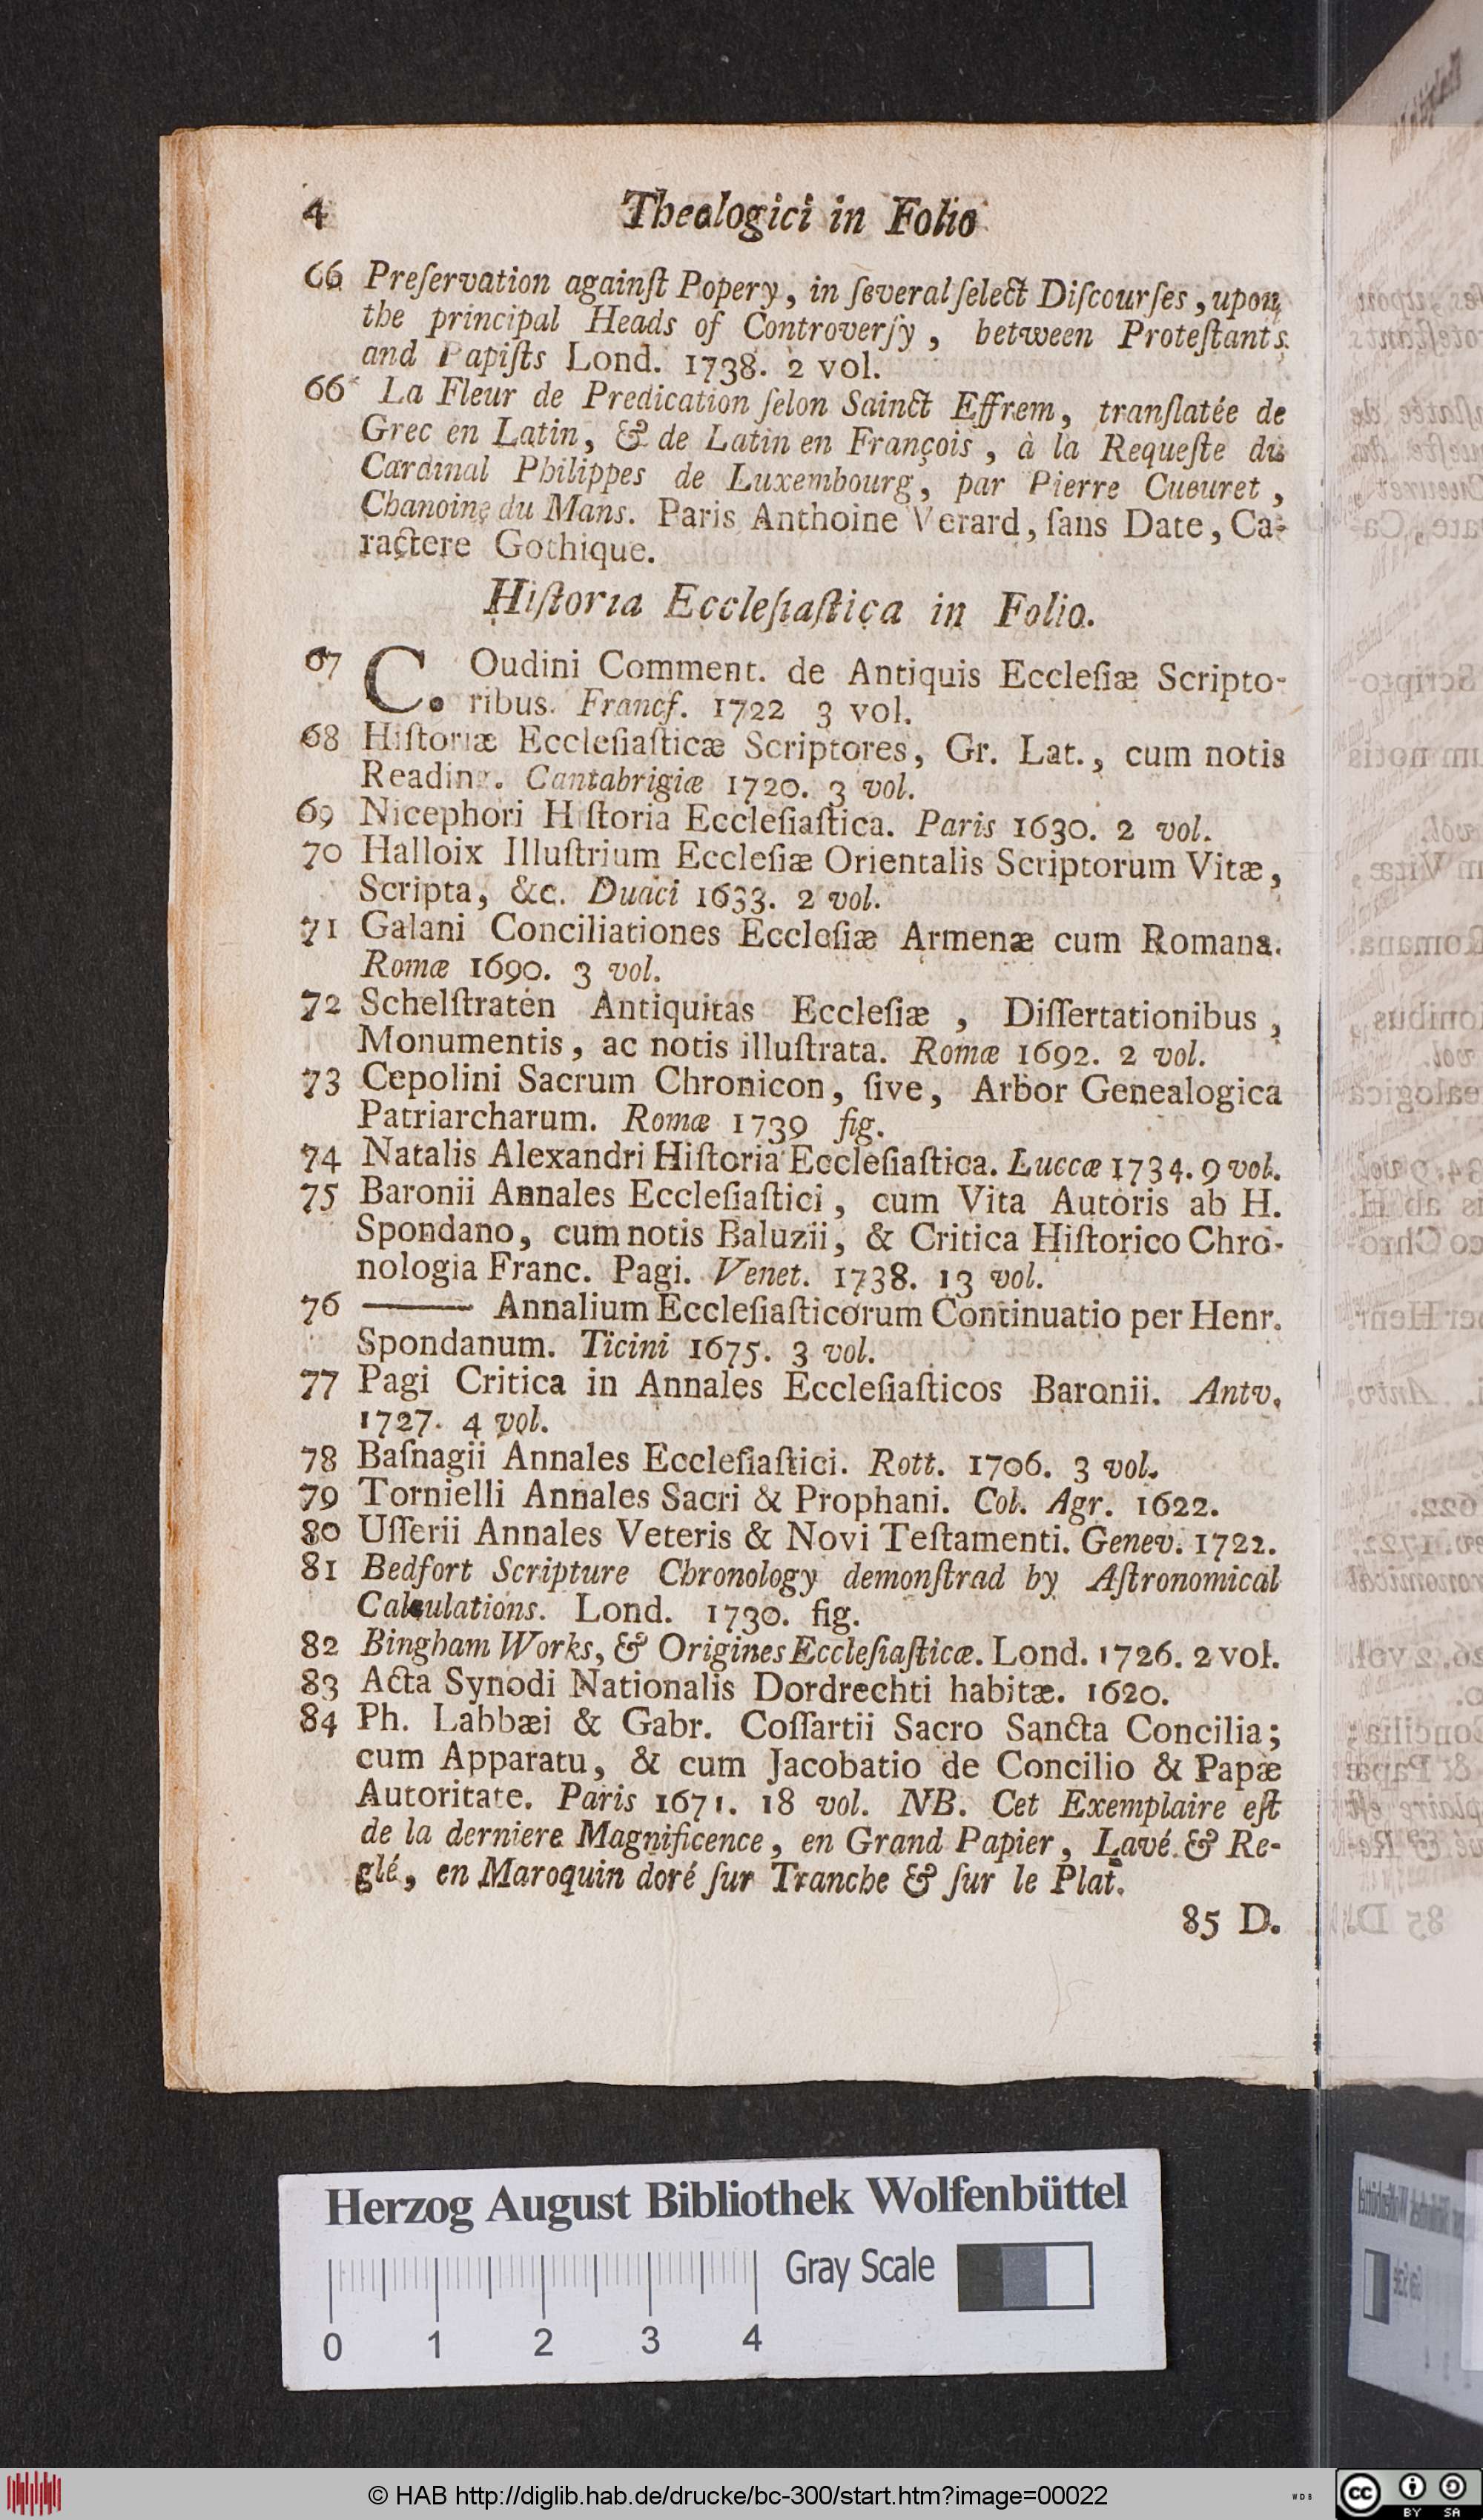 4 Theologici in Folio
66 Preſervation againſt Popery, in ſeveral ſelect Diſcourſes, upon
the principal Heads of Controverſy, between Proteſtants
and Papiſts Lond. 1738. 2 vol.
66* La Fleur de Predication ſelon Sainct Effrem, tranſlatée de
Grec en Latin, & de Latin en François, à la Requeſte du
Cardinal Philippes de Luxembourg, par Pierre Cueuret,
Chanoine du Mans. Paris Anthoine Verard, ſans Date, Ca-
ractere Gothique.
Hiſtoria Eccleſiaſtica in Folio.
67 C. Oudini Comment. de Antiquis Eccleſiæ Scripto-
ribus. Francf. 1722 3 vol.
68 Hiſtoriæ Eccleſiaſticæ Scriptores, Gr. Lat., cum notis
Reading. Cantabrigiæ 1720. 3 vol.
69 Nicephori Hiſtoria Eccleſiaſtica. Paris 1630. 2 vol.
70 Halloix Illuſtrium Eccleſiæ Orientalis Scriptorum Vitæ,
Scripta, &c. Duaci 1633. 2 vol.
71 Galani Conciliationes Eccleſiæ Armenæ cum Romana.
Romæ 1690. 3 vol.
72 Schelſtraten Antiquitas Eccleſiæ, Diſſertationibus,
Monumentis, ac notis illuſtrata. Romæ 1692. 2 vol.
73 Cepolini Sacrum Chronicon, ſive, Arbor Genealogica
Patriarcharum. Romæ 1739 fig.
74 Natalis Alexandri Hiſtoria Eccleſiaſtica. Luccæ 1734. 9 vol.
75 Baronii Annales Eccleſiaſtici, cum Vita Autoris ab H.
Spondano, cum notis Baluzii, & Critica Hiſtorico Chro-
nologia Franc. Pagi. Venet. 1738. 13 vol.
76 ——— Annalium Eccleſiaſticorum Continuatio per Henr.
Spondanum. Ticini 1675. 3 vol.
77 Pagi Critica in Annales Eccleſiaſticos Baronii. Antv.
1727. 4 vol.
78 Baſnagii Annales Eccleſiaſtici. Rott. 1706. 3 vol.
79 Tornielli Annales Sacri & Prophani. Col. Agr. 1622.
80 Uſſerii Annales Veteris & Novi Teſtamenti. Genev. 1722.
81 Bedfort Scripture Chronology demonſtrad by Aſtronomical
Calculations. Lond. 1730. fig.
82 Bingham Works, & Origines Eccleſiaſticæ. Lond. 1726. 2 vol.
83 Acta Synodi Nationalis Dordrechti habitæ. 1620.
84 Ph. Labbæi & Gabr. Coſſartii Sacro Sancta Concilia;
cum Apparatu, & cum Jacobatio de Concilio & Papæ
Autoritate. Paris 1671. 18 vol. NB. Cet Exemplaire eſt
de la derniere Magnificence, en Grand Papier, Lavé & Re-
glé, en Maroquin doré ſur Tranche & ſur le Plat.
85 D.
Herzog August Bibliothek Wolfenbüttel
Gray Scale
0 1 2 3 4
© HAB http://diglib.hab.de/drucke/bc-300/start.htm?image=00022
WDB
cc BY SA